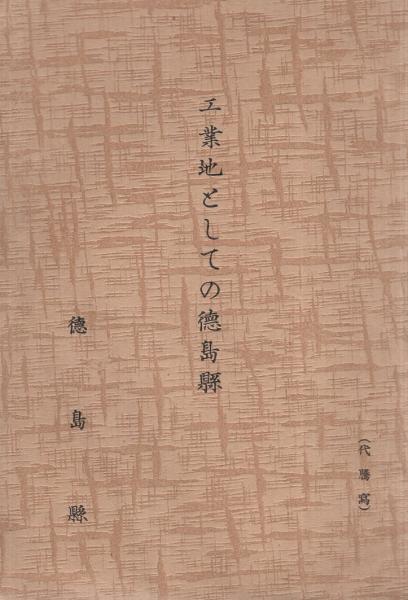 （代謄寫）
工業地としての德島縣
德島縣